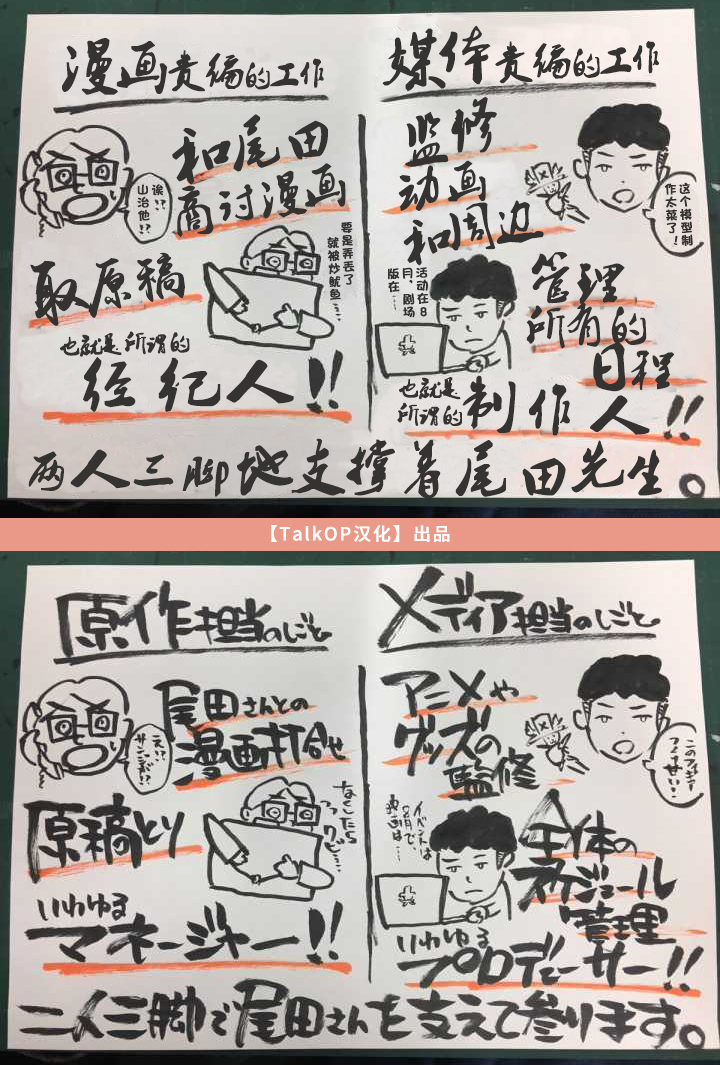 漫画责编的工作
和尾田
商讨漫画
诶!?
山治他!?
取原稿
要是弄丢了
就被炒鱿鱼……
也就是所谓的
经纪人!!
媒体责编的工作
监修
动画
和周边
这个模型制
作太菜了!
活动在8
月,剧场
版在……
管理
所有的
日程
也就是
所谓的
制作人!!
两人三脚地支撑着尾田先生。
【TalkOP汉化】出品
原作担当のしごと
尾田さんとの
漫画打合せ
え!?
サンジが!?
原稿とり
なくしたら
クビ……
いわゆる
マネージャー!!
メディア担当のしごと
アニメや
グッズの
監修
このフィギュア
イベントは
8月で、
映画は…
全体の
スケジュール
管理
いわゆる
プロデューサー!!
二人三脚で尾田さんを支えて参ります。